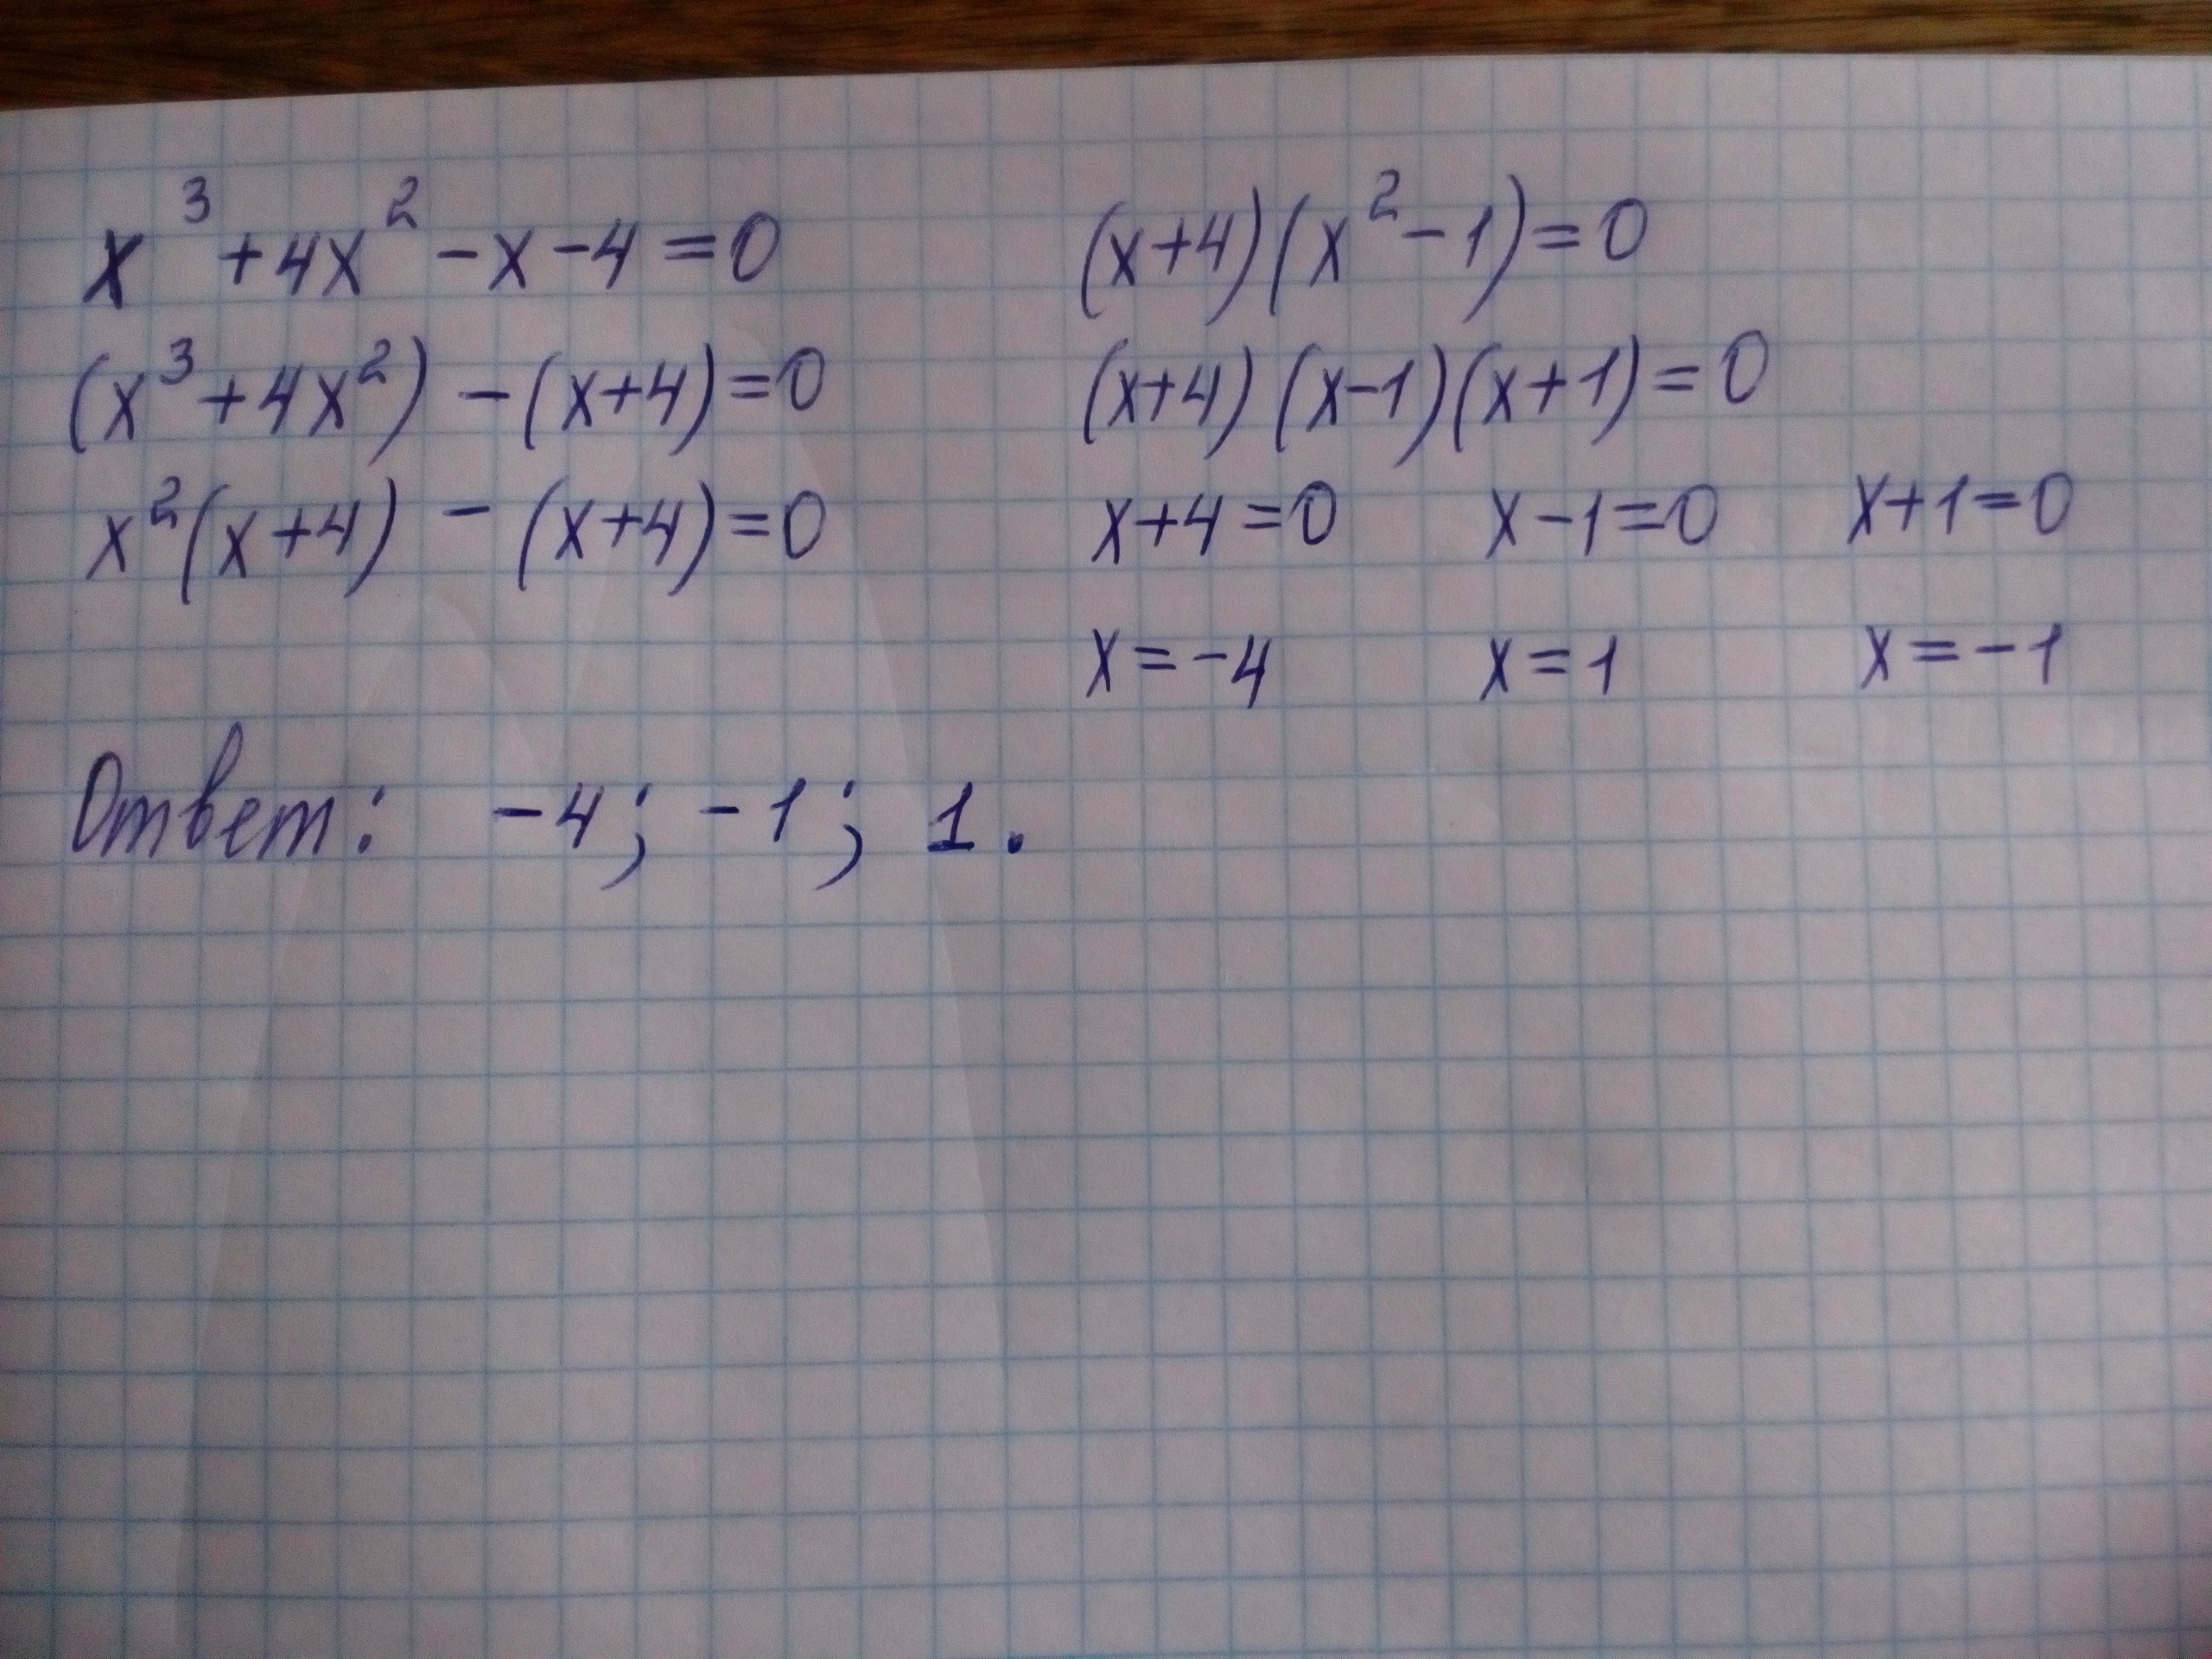 x³+4x²-x-4=0
(x³+4x²)-(x+4)=0
x²(x+4)-(x+4)=0
(x+4)(x²-1)=0
(x+4)(x-1)(x+1)=0
x+4=0 x-1=0 x+1=0
x=-4 x=1 x=-1
Ответ: -4; -1; 1.